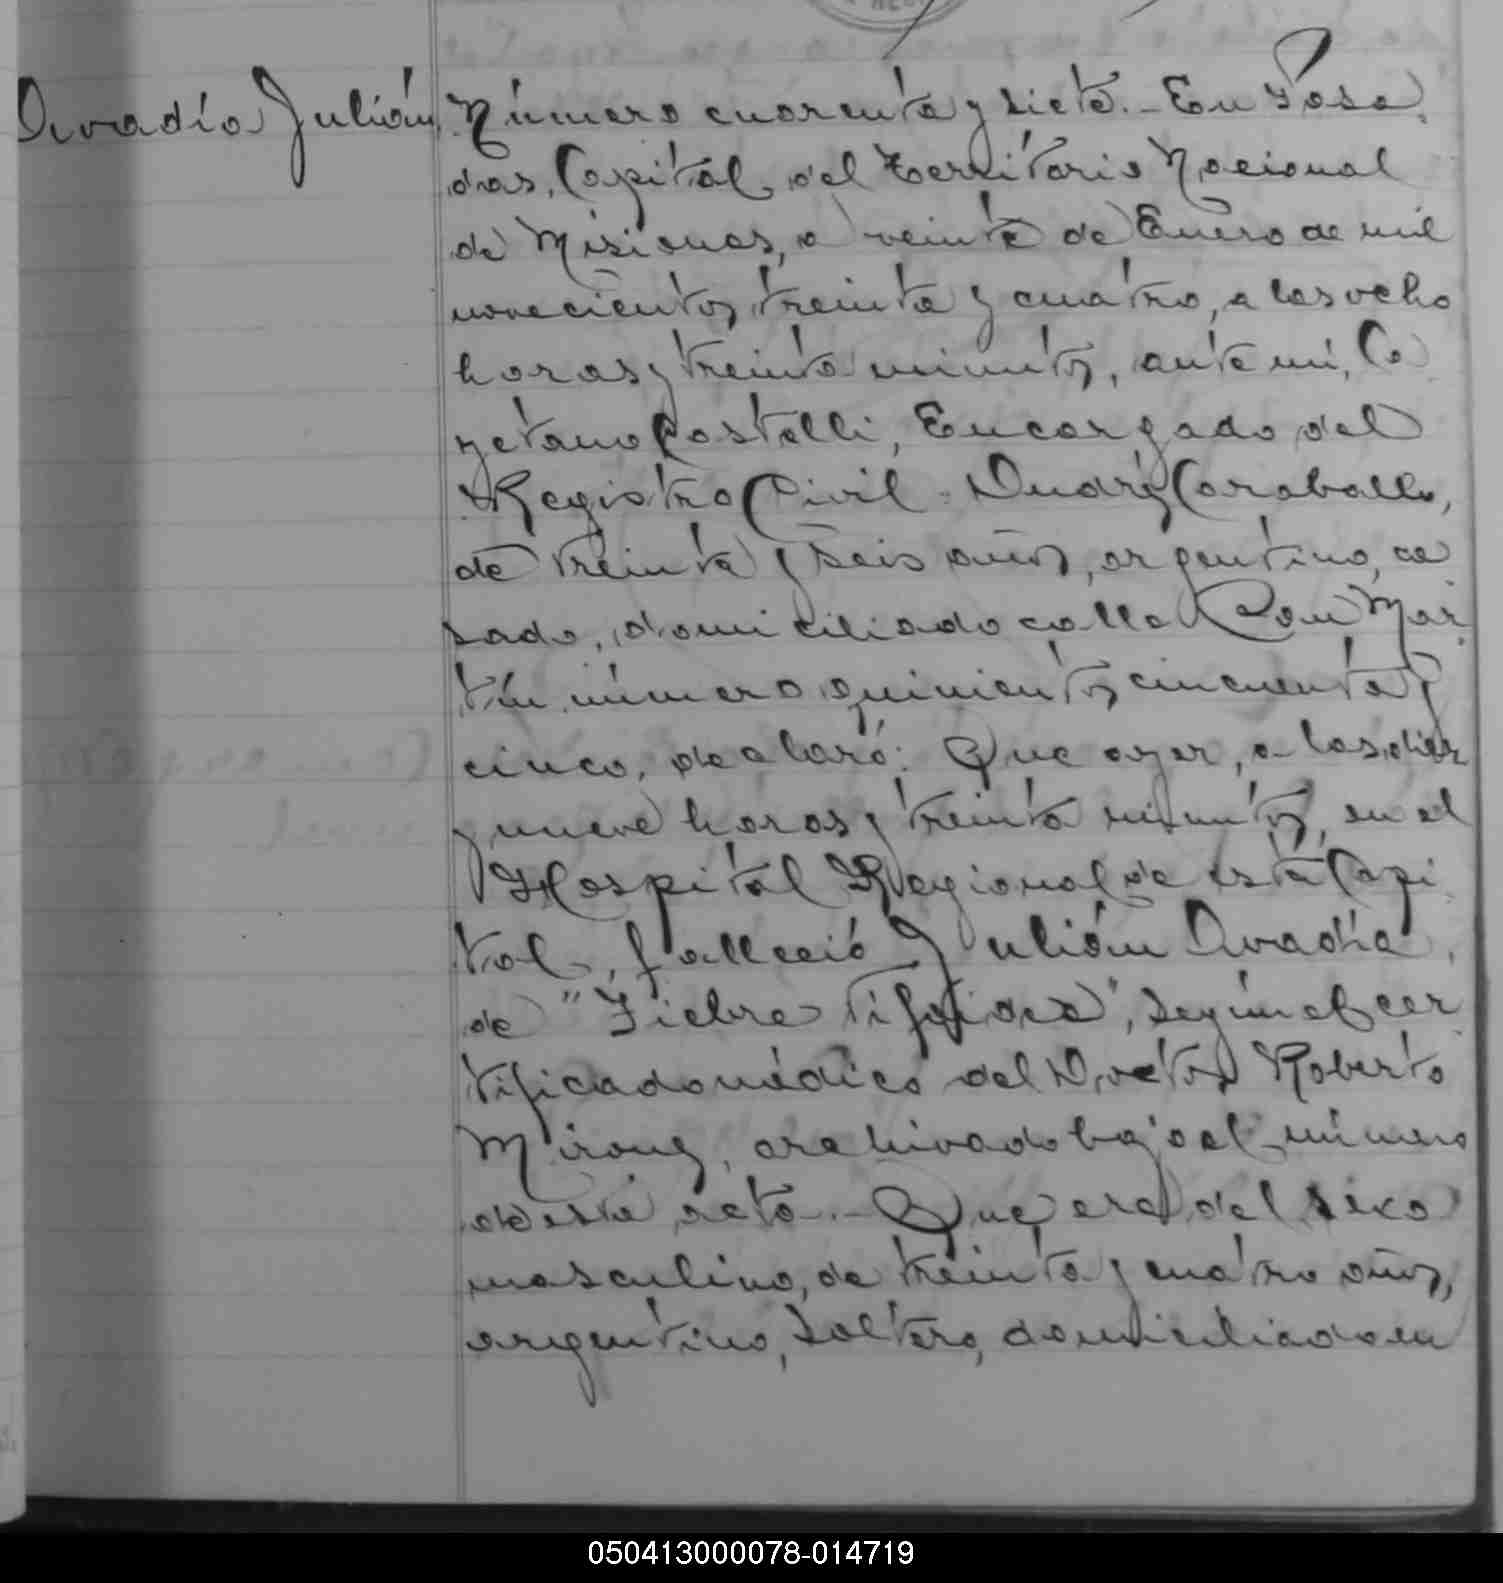 Ovadía Julián
Número cuarenta y siete.- En Posa
das, Capital del Territorio Nacional
de Misiones, a veinte de Enero de mil
novecientos treinta y cuatro, a las ocho
horas y treinta minutos, ante mí, Ca
yetano Castelli, Encargado del
Registro Civil - Caraballo,
de treinta y seis años, argentino, ca
sado, domiciliado calle San Mar
tín número quinientos cincuenta y
cinco, declaró: Que ayer, a las diez
y nueve horas y treinta minutos, en el
Hospital Regional de esta Capi
tal, falleció Julián Ovadía,
de "Fiebre Tifoidea", según el cer
tificado médico del Doctor Roberto
archivado bajo el número
de esta acta.- Que era del sexo
masculino, de treinta y cuatro años,
argentino, soltero, domiciliado en
050413000078-014719